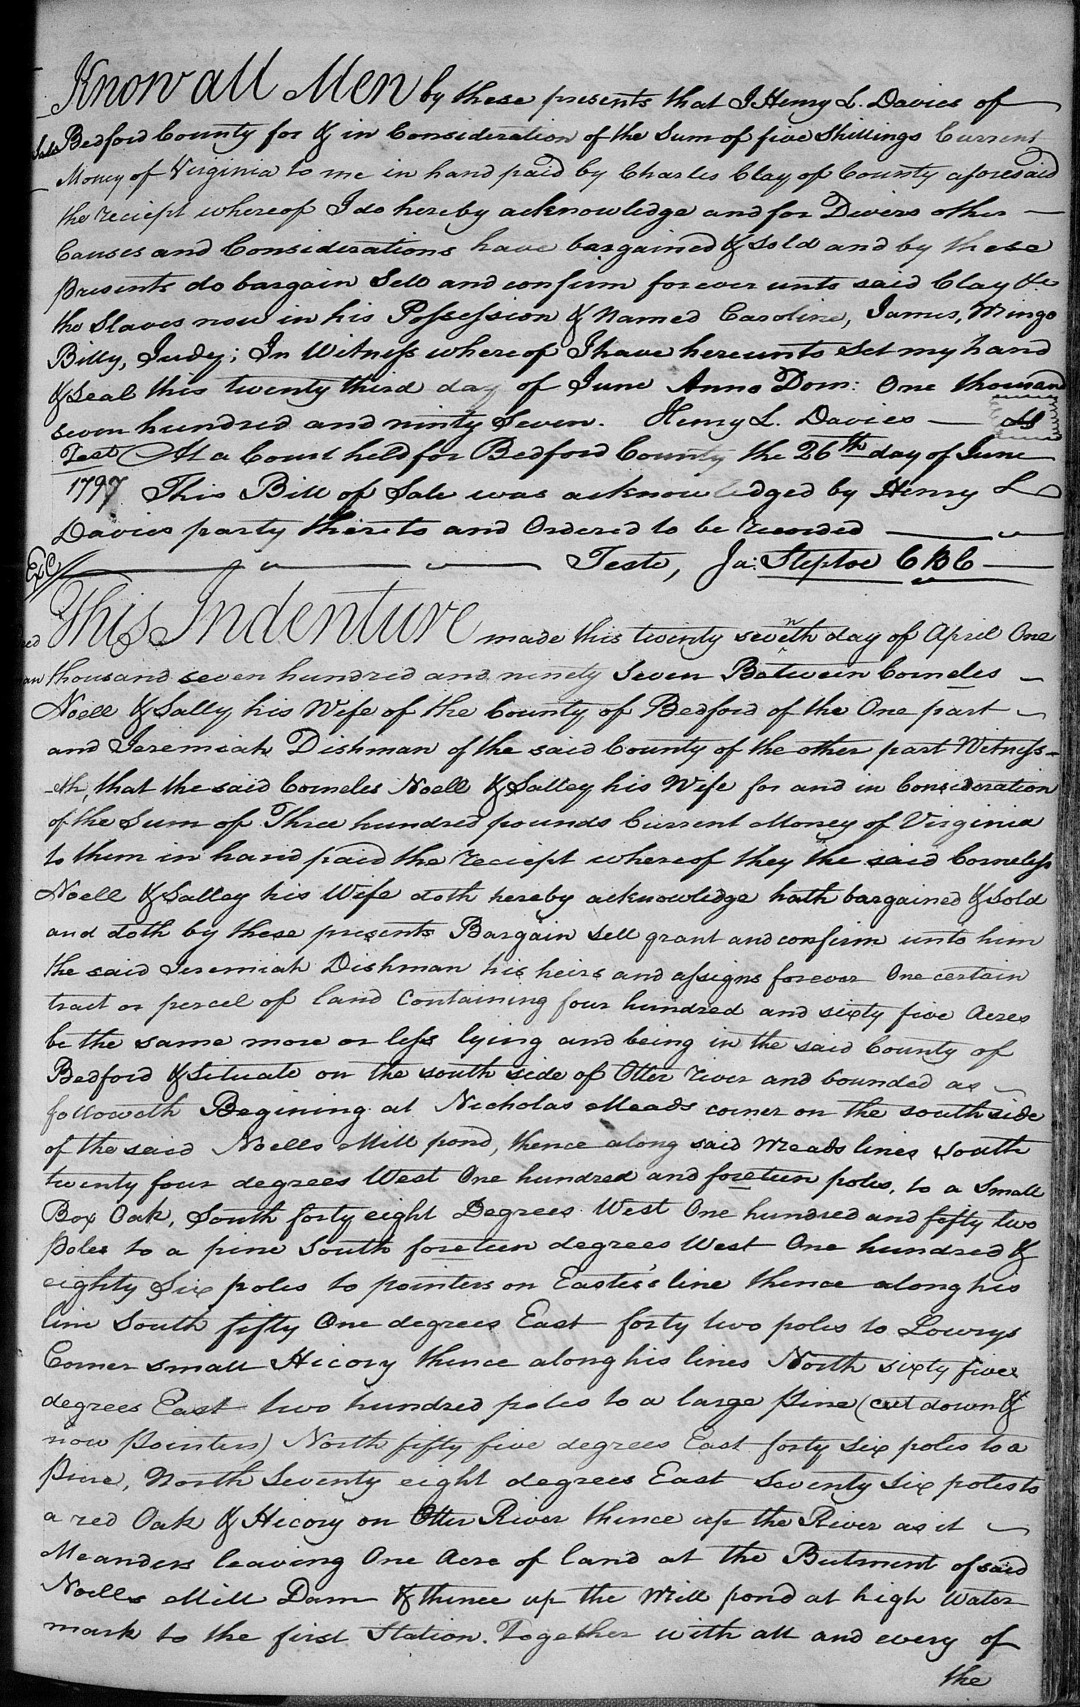 Know all Men by these presents that I Henry L. Davies of
Sale Bedford County for & in Consideration of the Sum of five Shillings Current
Money of Virginia to me in hand paid by Charles Clay of County aforesaid
the reciept whereof I do hereby acknowledge and for Divers other
Causes and Considerations have bargained & Sold and by these
presents do bargain Sell and confirm forever unto said Clay &c
the Slaves now in his Possession & Named Caroline, James, Mingo
Billy, Judy; In Witness whereof I have hereunto Set my hand
& Seal this twenty third day of June Anno Dom: One thousand
seven hundred and ninty Seven. Henry L. Davies LS
Test At a Court held for Bedford County the 26th day of June
1797 This Bill of Sale was acknowledged by Henry L
Davies party thereto and Ordered to be recorded
Teste, Ja: Steptoe CBC
This Indenture made this twenty sevnth day of April One
thousand seven hundred and ninety Seven Between Corneles
Noell & Sally his Wife of the County of Bedford of the One part
and Jeremiah Dishman of the said County of the other part Witness-
-eth, that the said Corneles Noell & Salley his Wife for and in Consideration
of the Sum of Three hundred pounds Current Money of Virginia
to them in hand paid the reciept whereof they the said Corneless
Noell & Salley his Wife doth hereby acknowledge hath bargained & Sold
and doth by these presents Bargain Sell grant and confirm unto him
the said Jeremiah Dishman his heirs and assigns forever One certain
tract or percel of land Containing four hundred and sixty five Acres
be the same more or less lying and being in the said County of
Bedford & Situate on the south side of Otter river and bounded as
followeth Begining at Nicholas Meads corner on the south side
of the said Noells Mill pond, thence along said Meads lines South
twenty four degrees West One hundred and foreteen poles, to a Small
Box Oak, South forty eight Degrees West One hundred and fifty two
Poles to a pine South foreteen degrees West One hundred &
eighty Six poles to pointers on Easter's line thence along his
line South fifty One degrees East forty two poles to Lowrys
Corner small Hicory thence along his lines North sixty five
degrees East two hundred poles to a large Pine (cut down &
now Pointers) North fifty five degrees East forty Six poles to a
Pine, North Seventy eight degrees East Seventy Six poles to
a red Oak & Hicory on Otter River thence up the River as it
Meanders leaving One Acre of land at the Butment of said
Noells Mill Dam & thence up the Mill pond at high Water
mark to the first Station. Together with all and every of
the